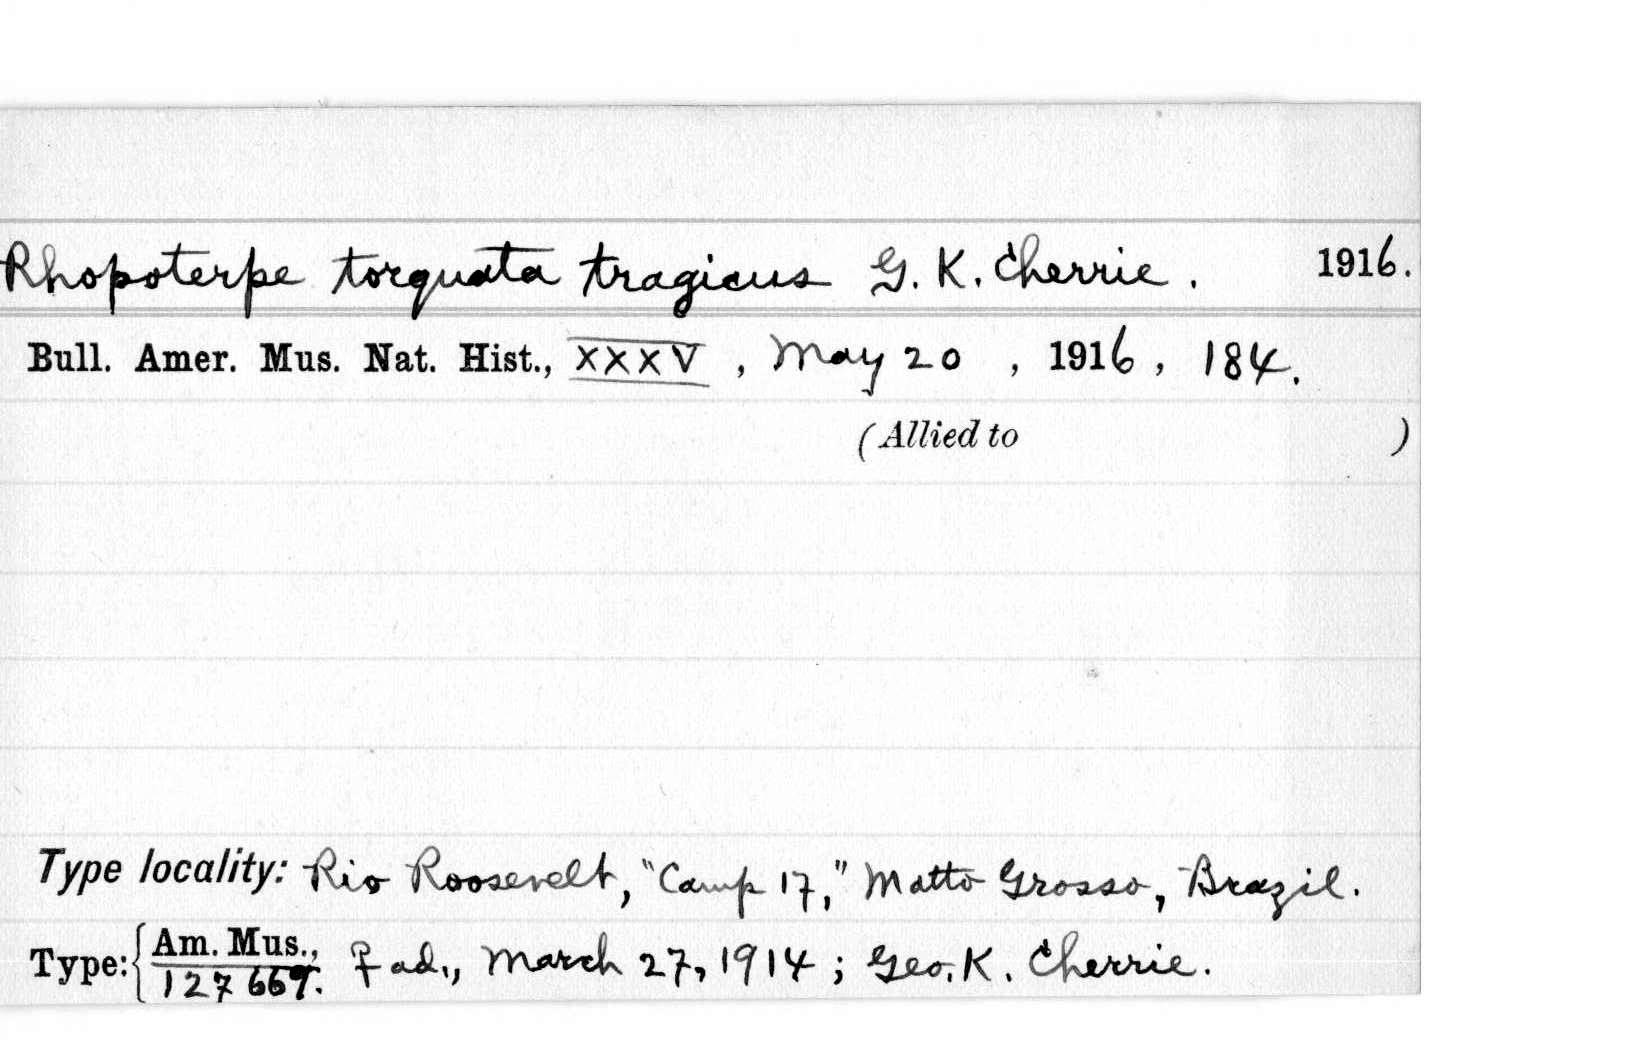 Rhopoterpe torquata tragicus G. K. Cherrie. 1916.
Bull. Amer. Mus. Nat. Hist., XXXV, May 20, 1916, 184.
(Allied to )
Type locality: Rio Roosevelt, "Camp 17," Matto Grosso, Brazil.
Type: { Am. Mus., 127669. ♀ ad., March 27, 1914; Geo. K. Cherrie.